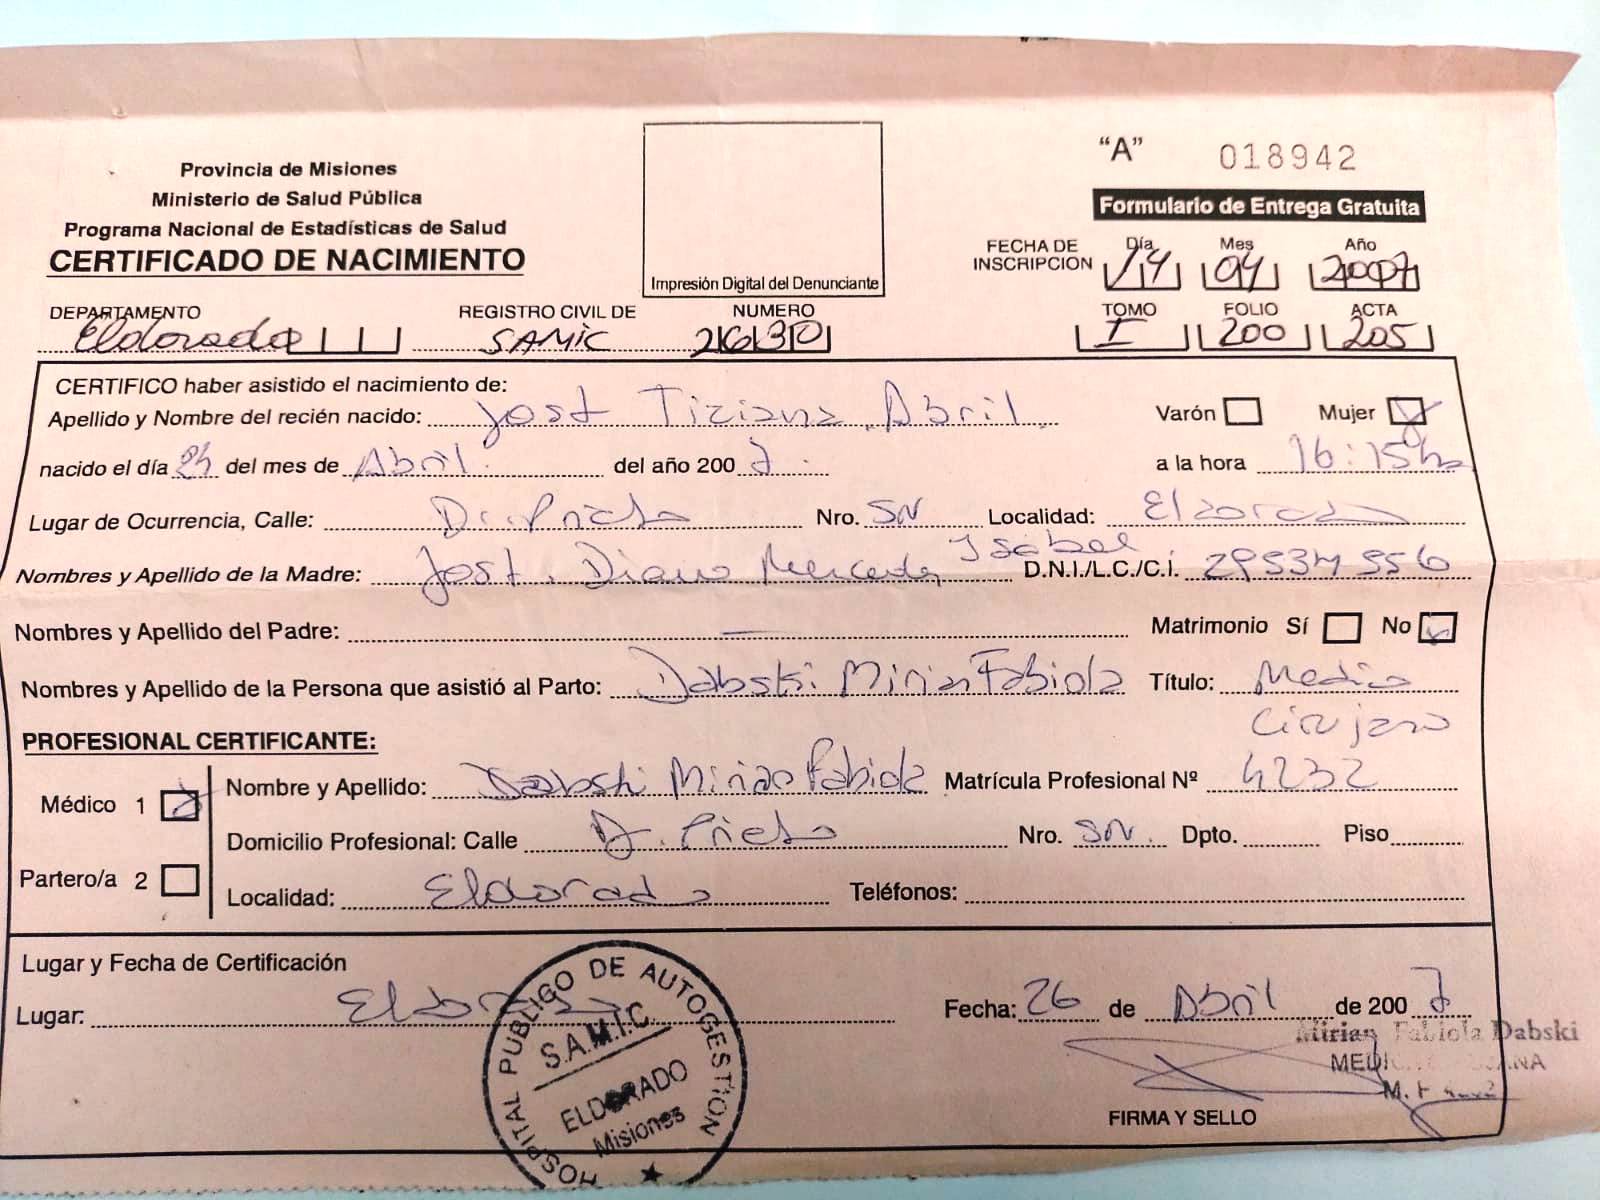 "A" 018942
Provincia de Misiones
Ministerio de Salud Pública
Programa Nacional de Estadísticas de Salud
CERTIFICADO DE NACIMIENTO
Impresión Digital del Denunciante
Formulario de Entrega Gratuita
FECHA DE INSCRIPCION Día Mes 04 Año 2007
DEPARTAMENTO Eldorado REGISTRO CIVIL DE SAMIC NUMERO 2630
TOMO I FOLIO 200 ACTA 205
CERTIFICO haber asistido el nacimiento de:
Apellido y Nombre del recién nacido: Jost Tiziana Abril Varón Mujer
nacido el día 24 del mes de Abril del año 200 7 a la hora 16:15 hs
Lugar de Ocurrencia, Calle: Dr. Prieto Nro. SN Localidad: Eldorado
Nombres y Apellido de la Madre: Jost, Diana Mercedes Isabel D.N.I./L.C./C.I. 29534556
Nombres y Apellido del Padre: — Matrimonio Sí No
Nombres y Apellido de la Persona que asistió al Parto: Dabski Mirian Fabiola Título: Medico
Cirujano
PROFESIONAL CERTIFICANTE:
Médico 1 Nombre y Apellido: Dabski Mirian Fabiola Matrícula Profesional Nº 4232
Domicilio Profesional: Calle Dr. Prieto Nro. SN. Dpto. Piso
Partero/a 2
Localidad: Eldorado Teléfonos:
Lugar y Fecha de Certificación
Lugar: Eldorado Fecha: 26 de Abril de 200 7
HOSPITAL PUBLICO DE AUTOGESTION
S.A.M.I.C.
ELDORADO
Misiones
Mirian Fabiola Dabski
FIRMA Y SELLO